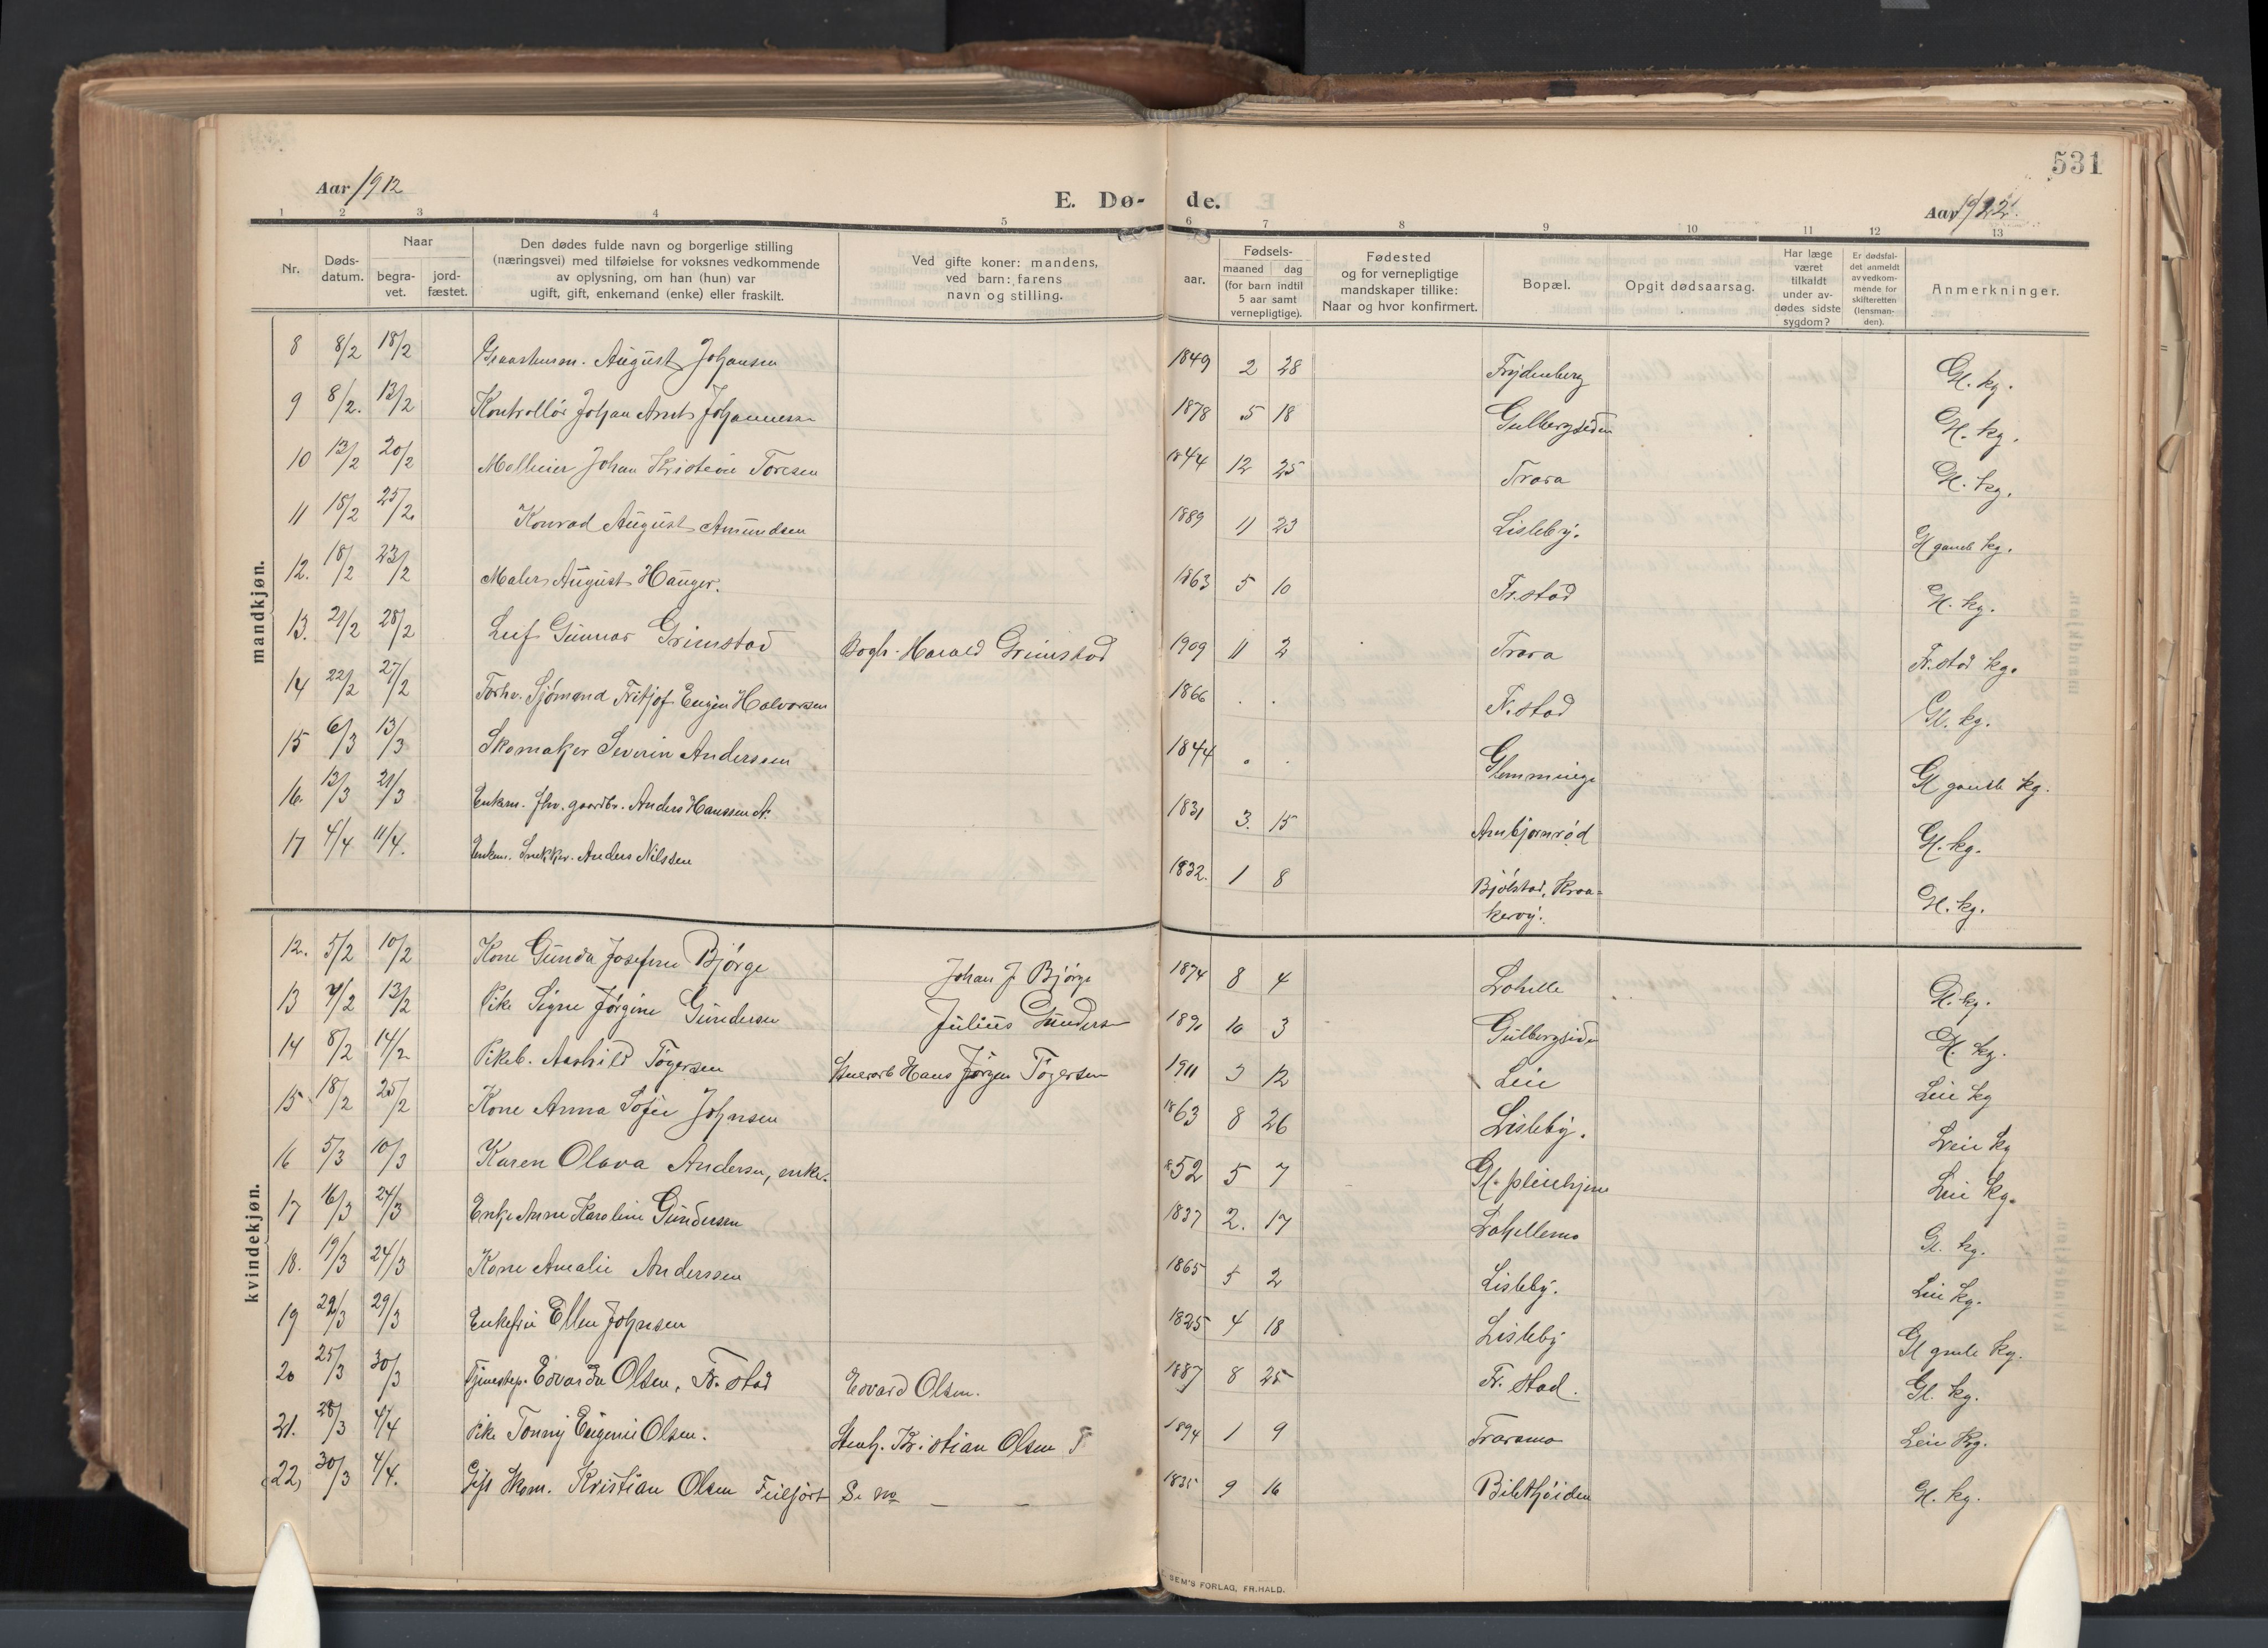 531
Aar 1912
E. Dø- de.
Aar 1922.
1 2 3 4 5 6 7 8 9 10 11 12 13
Nr.
Døds-
datum.
Naar
begra-
vet.
jord-
fæstet.
Den dødes fulde navn og borgerlige stilling
(næringsvei) med tilføielse for voksnes vedkommende
av oplysning, om han (hun) var
ugift, gift, enkemand (enke) eller fraskilt.
Ved gifte koner: mandens,
ved barn: farens
navn og stilling.
aar.
Fødsels-
maaned dag
(for barn indtil
5 aar samt
vernepligtige).
Fødested
og for vernepligtige
mandskaper tillike:
Naar og hvor konfirmert.
Bopæl.
Opgit dødsaarsag.
Har læge
været
tilkaldt
under av-
dødes sidste
sygdom?
Er dødsfal-
det anmeldt
av vedkom-
mende for
skifteretten
(lensman-
den).
Anmerkninger.
mandkjøn.
8 8/2 18/2 August Johansen 1849 2 28 Frydenberg Gl. kg.
9 8/2. 13/2 Kontrollör Johan Arnt Johannessen 1878 5 18 Gulbergsiden Gl. kg.
10 13/2 20/2 Johan Kristian Toresen 1844 12 25 Trara Gl. kg.
11 18/2 25/2 Konrad August Amundsen 1889 11 23 Lisleby. Gl gamle kg.
12. 18/2 23/2 Maler August Hauger. 1863 5 10 Fr.stad Gl. kg.
13. 21/2 28/2 Leif Gunnar Grimstad Bogh. Harald Grimstad 1909 11 2 Trara Fr.stad kg.
14 22/2 27/2 Forhv. Sjömand Fritjof Eugen Halvorsen 1866 . . Fr.stad Gl. kg.
15 6/3 13/3 Skomaker Severin Anderssen 1844 . . Glemminge Gl gamle kg.
16. 13/3 21/3 Enkem. fhv. gaardbr. Anders Hanssen A. 1831 3. 15 Arnbjørnrød Gl. kg.
17 4/4 11/4. Enkem. Snekker. Anders Nilssen 1832. 1 8 Bjölstad, Kraa-
kerøy. Gl. kg.
kvindekjøn.
12. 5/2 10/2 Kone Gunda Josefine Bjørge Johan J Bjørge 1874 8 4 Lahelle Gl. kg.
13 7/2 13/2 Pike Signe Jørgine Gundersen Julius Gundersen 1891 10 3 Gulbergsiden Gl. kg.
14 8/2 14/2 Pikeb. Aashild Tøgersen Hans Jørgen Tøgersen 1911 3 12 Leie Leie kg
15 18/2 25/2 Kone Anna Sofie Johnsen 1863 8 26 Lisleby. Leie kg
16 5/3 10/3 Karen Olava Andersen, enke. 1852 5 7 Gl. pleiehjem Leie kg.
17 16/3 24/3 Enke Anne Karoline Gundersen 1837 2. 17 Lahellemo Gl. kg.
18. 19/3 24/3 Kone Amalie Anderssen 1865 5 2 Lisleby. Leie kg.
19 22/3 29/3 Enkefru Ellen Johnsen 1825 4 18 Lisleby Gl gamle kg.
20 25/3 30/3 Tjenestep. Edvarda Olsen, Fr. stad Edvard Olsen. 1887 8 25 Fr. stad. Gl. kg.
21. 28/3 4/4 Pike Tonny Eugenie Olsen. Stenh. Kristian Olsen 1894 1 9 Traramo Leie kg.
22, 30/3 4/4. Gift Skom. Kristian Olsen Feilført Se no — — 1835 9 16 Biletthøiden Gl. kg.
SEM'S FORLAG, FR.HALD.